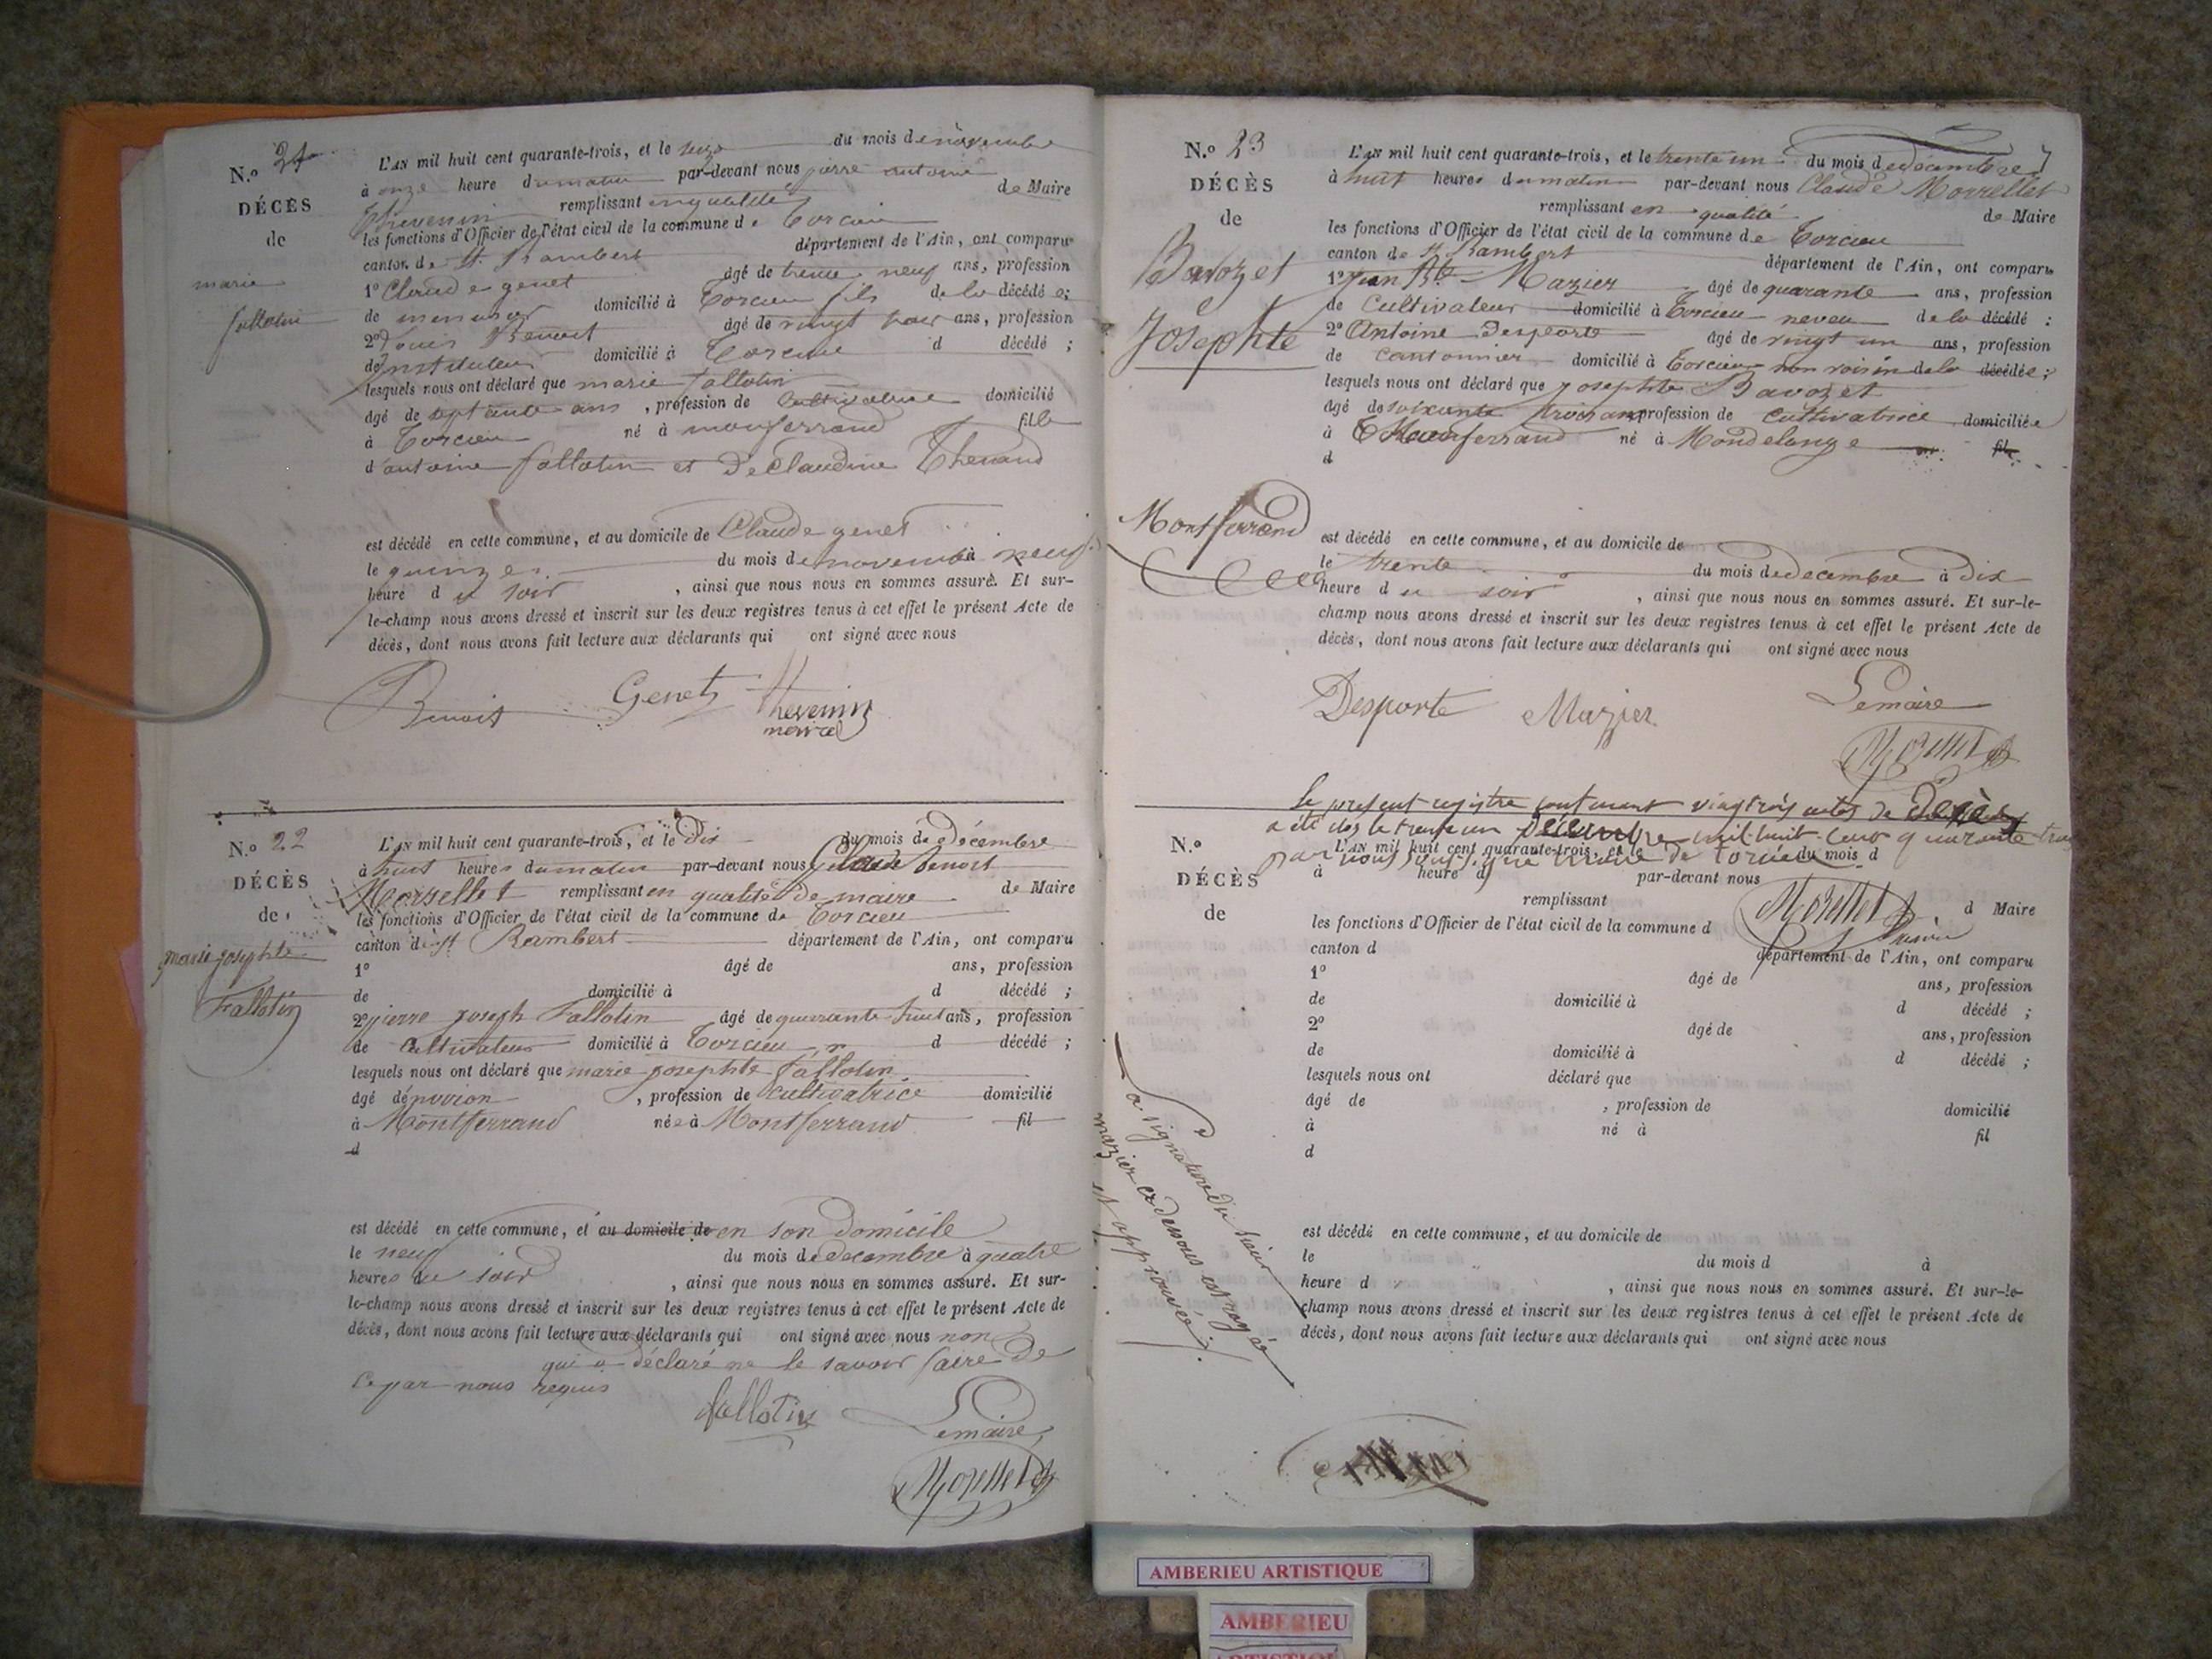 N.o 21
DÉCÈS
de
marie
fallotin
L'AN mil huit cent quarante-trois, et le seize du mois de novembre
à onze heure du matin par-devant nous pierre antoine
Thevenin remplissant en qualité de Maire
les fonctions d'Officier de l'état civil de la commune de Torcieu
canton de St. Rambert département de l'Ain, ont comparu
1o Claude genet âgé de trente neuf ans, profession
de domicilié à Torcieu fils de la décédée;
2o Louis Benoit âgé de vingt trois ans, profession
d'instituteur domicilié à Torcieu d décédé ;
lesquels nous ont déclaré que marie fallotin
âgé de septante ans , profession de cultivatrice domicilié
à Torcieu né à monferrand fille
d'antoine fallotin et De Claudine Thenand
est décédé en cette commune, et au domicile de Claude genet
le quinze du mois de novembre à neuf
heure du soir , ainsi que nous nous en sommes assuré. Et sur-
le-champ nous avons dressé et inscrit sur les deux registres tenus à cet effet le présent Acte de
décès, dont nous avons fait lecture aux déclarants qui ont signé avec nous
Benoit Genet Thevenin
N.o 22
DÉCÈS
de
marie josephte
Fallotin
L'AN mil huit cent quarante-trois, et le Dix du mois de Décembre
à huit heures du matin par-devant nous Claude benoit
Morellet remplissant en qualité de maire de Maire
les fonctions d'Officier de l'état civil de la commune de Torcieu
canton de St Rambert département de l'Ain, ont comparu
1o âgé de ans, profession
de domicilié à d décédé ;
2o pierre joseph Fallotin âgé de quarante huit ans, profession
de Cultivateur domicilié à Torcieu d décédé ;
lesquels nous ont déclaré que marie josephte fallotin
âgé d'environ , profession de cultivatrice domicilié
à Montferrand née à Montferrand fil
d
est décédé en cette commune, et au domicile de en son Domicile
le neuf du mois de decembre à quatre
heures du soir , ainsi que nous nous en sommes assuré. Et sur-
le-champ nous avons dressé et inscrit sur les deux registres tenus à cet effet le présent Acte de
décès, dont nous avons fait lecture aux déclarants qui ont signé avec nous non
qui a déclaré ne le savoir faire De
ce par nous requis
fallotin Lemaire
Morellet
N.o 23
DÉCÈS
de
Bavozet
Josephte
Montferrand
L'AN mil huit cent quarante-trois, et le trente un du mois de décembre
à huit heures du matin par-devant nous Claude Morrellet
remplissant en qualité de Maire
les fonctions d'Officier de l'état civil de la commune de Torcieu
canton de St Rambert département de l'Ain, ont comparu
1o jean Bte Mazier âgé de quarante ans, profession
de Cultivateur domicilié à Torcieu neveu de la décédé ;
2o Antoine Desporte âgé de vingt un ans, profession
de cantonnier domicilié à Torcieu non voisin de la décédée ;
lesquels nous ont déclaré que josephte Bavozet
âgé de soixante trois ans profession de cultivatrice domiciliée
à Montferrand né à Mondelange fil
d
est décédé en cette commune, et au domicile de
le trente du mois de decembre à dix
heure du soir , ainsi que nous nous en sommes assuré. Et sur-le-
champ nous avons dressé et inscrit sur les deux registres tenus à cet effet le présent Acte de
décès, dont nous avons fait lecture aux déclarants qui ont signé avec nous
Desporte Mazier Lemaire
Morellet
le present registre contenant vingt trois actes de Décès
a été clos le trente un Décembre mil huit cent quarante trois
par nous soussigné maire de Torcieu
Morellet
N.o
DÉCÈS
de
L'AN mil huit cent quarante-trois, et le du mois d
à heure d par-devant nous
remplissant d Maire
les fonctions d'Officier de l'état civil de la commune d
canton d département de l'Ain, ont comparu
1o âgé de ans, profession
de domicilié à d décédé ;
2o âgé de ans, profession
de domicilié à d décédé ;
lesquels nous ont déclaré que
âgé de , profession de domicilié
à né à fil
d
est décédé en cette commune, et au domicile de
le du mois d à
heure d , ainsi que nous nous en sommes assuré. Et sur-le-
champ nous avons dressé et inscrit sur les deux registres tenus à cet effet le présent Acte de
décès, dont nous avons fait lecture aux déclarants qui ont signé avec nous
La signature du sieur
mazier ci dessous est rayée
et approuvée
AMBERIEU ARTISTIQUE
AMBERIEU
ARTISTIQUE